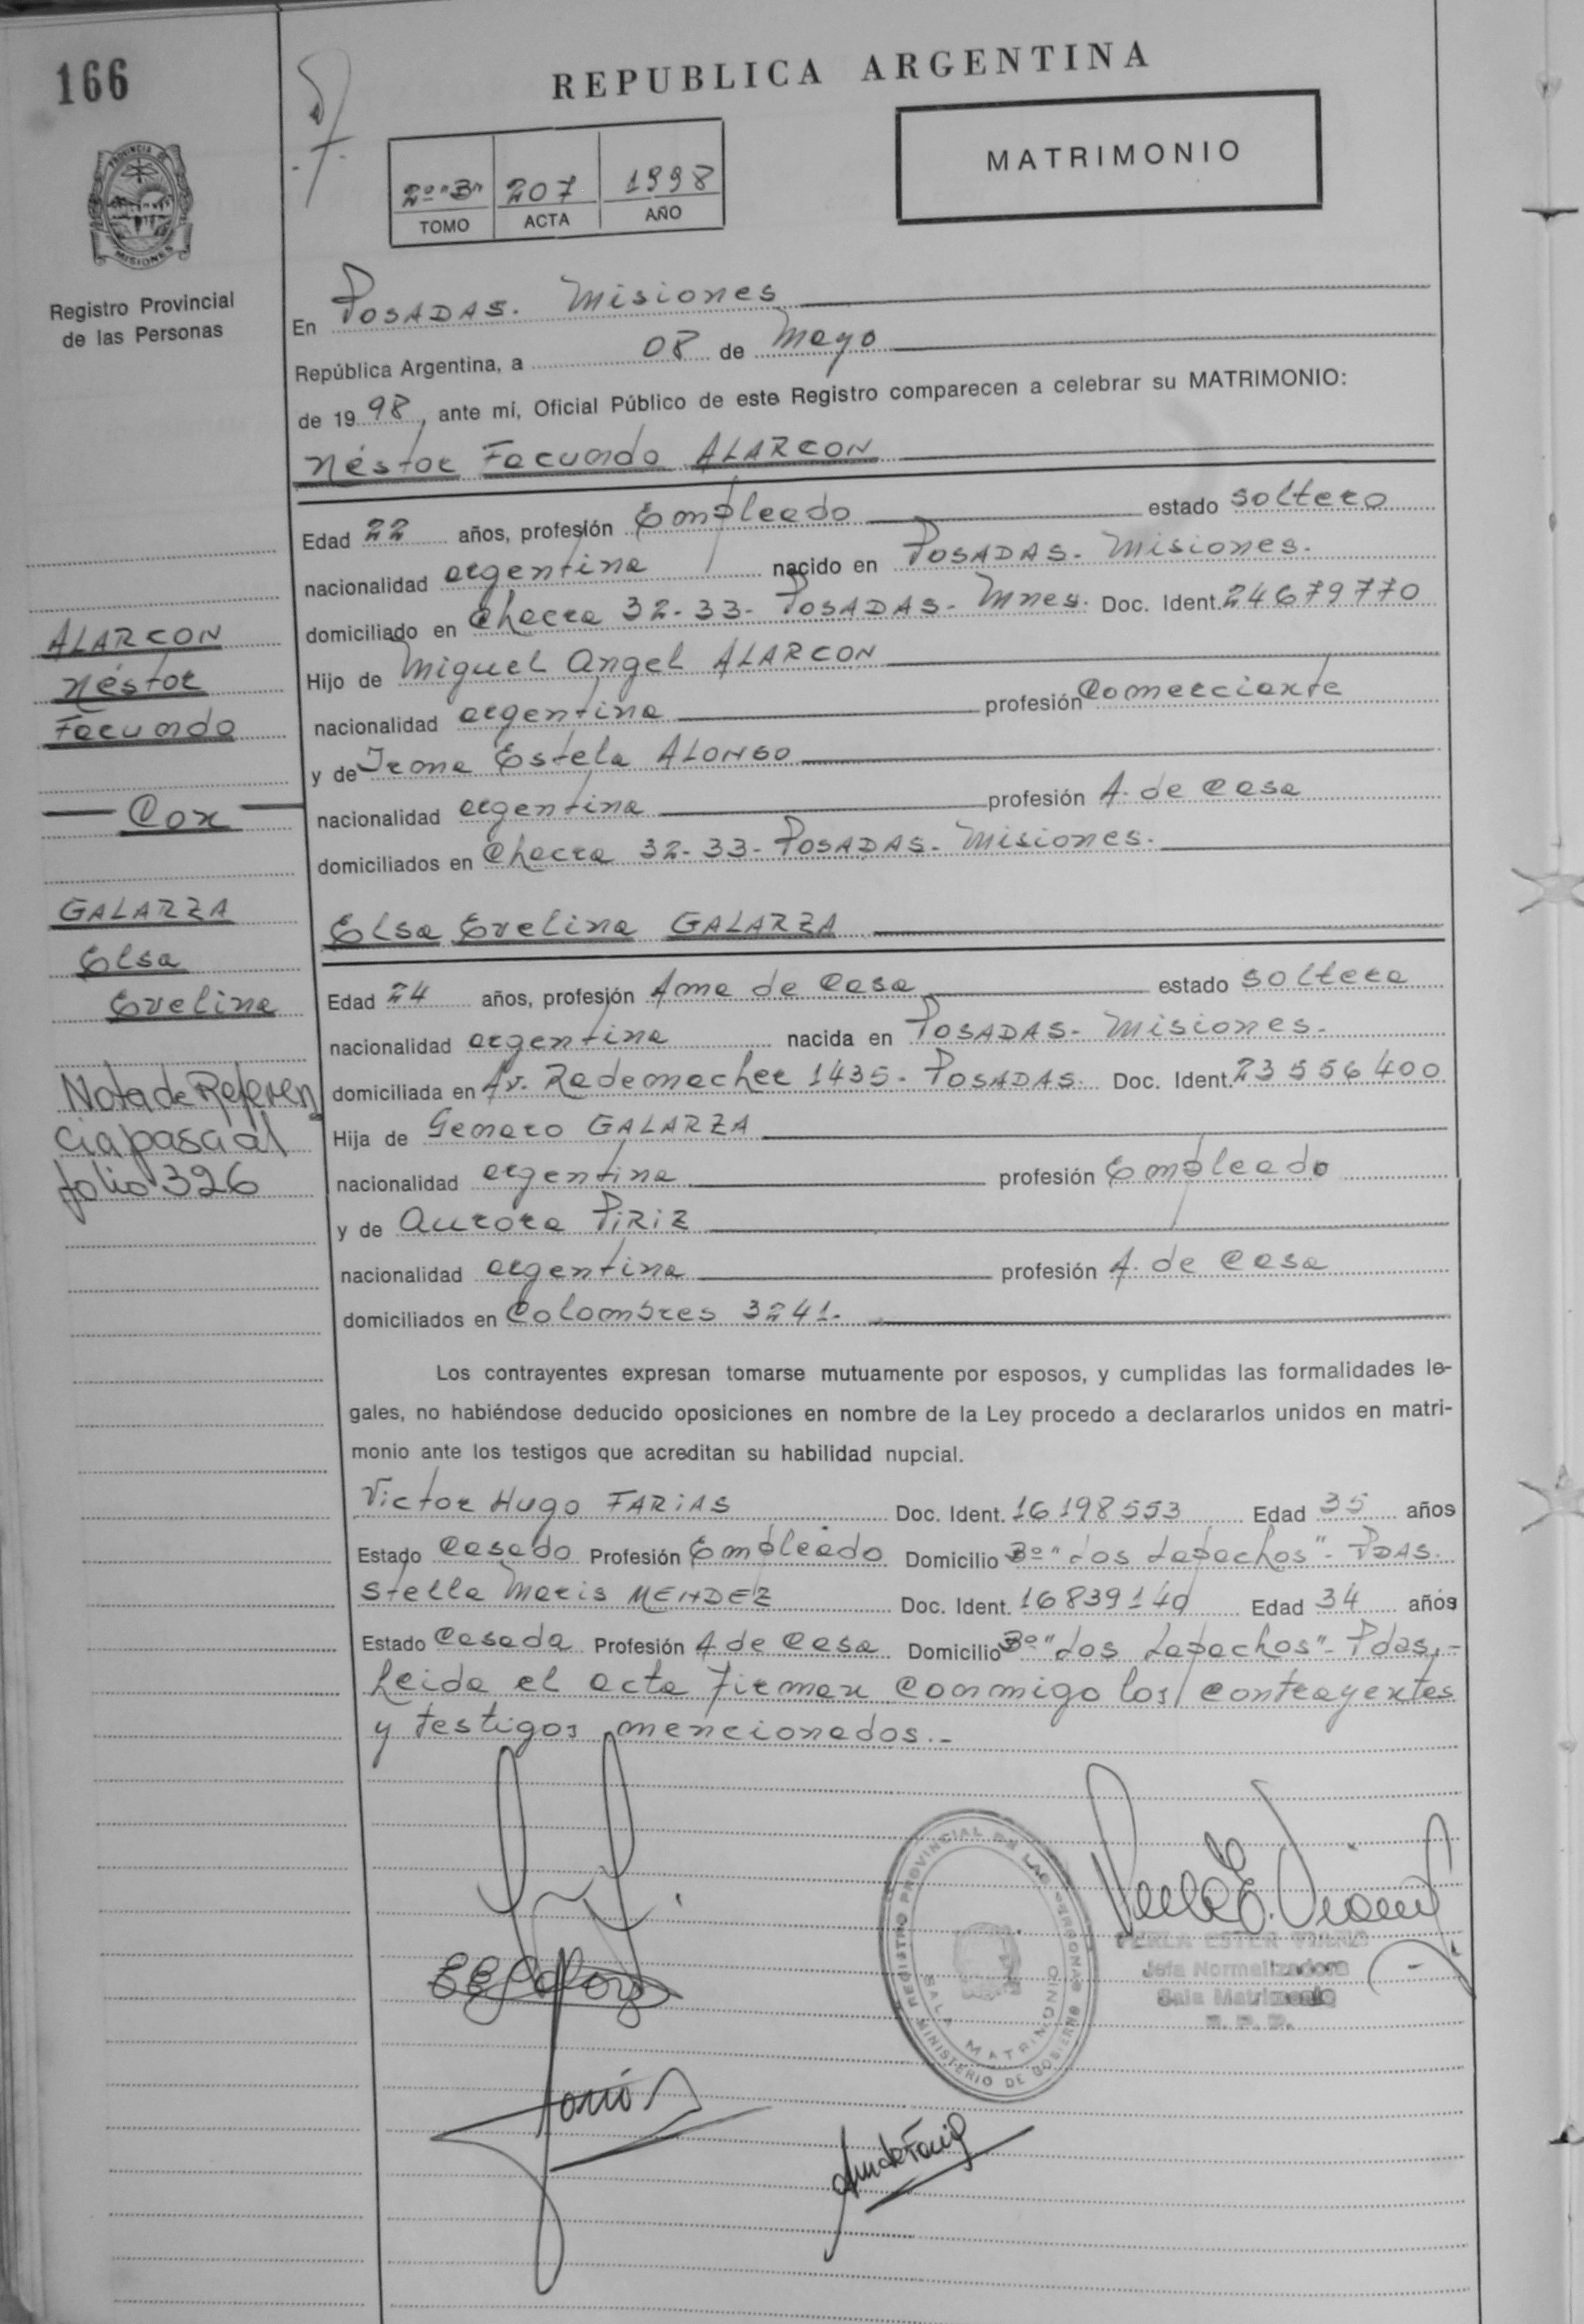 166
REPUBLICA ARGENTINA
MATRIMONIO
2º "B" 207 1998
TOMO ACTA AÑO
PROVINCIA DE MISIONES
Registro Provincial
de las Personas
En POSADAS. Misiones
República Argentina, a 08 de Mayo
de 1998, ante mí, Oficial Público de este Registro comparecen a celebrar su MATRIMONIO:
Néstor Facundo ALARCON
Edad 22 años, profesión Empleado estado soltero
nacionalidad argentina nacido en POSADAS- Misiones.
domiciliado en Chacra 32-33- POSADAS- Mnes. Doc. Ident. 24679770
Hijo de Miguel Angel ALARCON
nacionalidad argentina profesión Comerciante
y de Irma Estela ALONSO
nacionalidad argentina profesión A. de Casa
domiciliados en Chacra 32-33- POSADAS- Misiones.
Elsa Evelina GALARZA
Edad 24 años, profesión Ama de Casa estado soltera
nacionalidad argentina nacida en POSADAS- Misiones.
domiciliada en Av. Rademacher 1435- POSADAS. Doc. Ident. 23556400
Hija de Genaro GALARZA
nacionalidad argentina profesión Empleado
y de Aurora PIRIZ
nacionalidad argentina profesión A. de Casa
domiciliados en Colombres 3241.
Los contrayentes expresan tomarse mutuamente por esposos, y cumplidas las formalidades le-
gales, no habiéndose deducido oposiciones en nombre de la Ley procedo a declararlos unidos en matri-
monio ante los testigos que acreditan su habilidad nupcial.
Victor Hugo FARIAS Doc. Ident. 16198553 Edad 35 años
Estado Casado Profesión Empleado Domicilio Bº "Los Lapachos"- PDAS.
Stella Maris MENDEZ Doc. Ident. 16839140 Edad 34 años
Estado Casada Profesión A. de Casa Domicilio Bº "Los Lapachos"- Pdas.-
Leida el acta firman conmigo los contrayentes
y testigos mencionados.-
ALARCON
Néstor
Facundo
Con
GALARZA
Elsa
Evelina
Nota de Referen
cia pasa al
folio 326
REGISTRO PROVINCIAL DE LAS PERSONAS
MINISTERIO DE GOBIERNO
SALA MATRIMONIO
PERLA ESTER
Jefa Normalizadora
Sala Matrimonio
R. P. P.